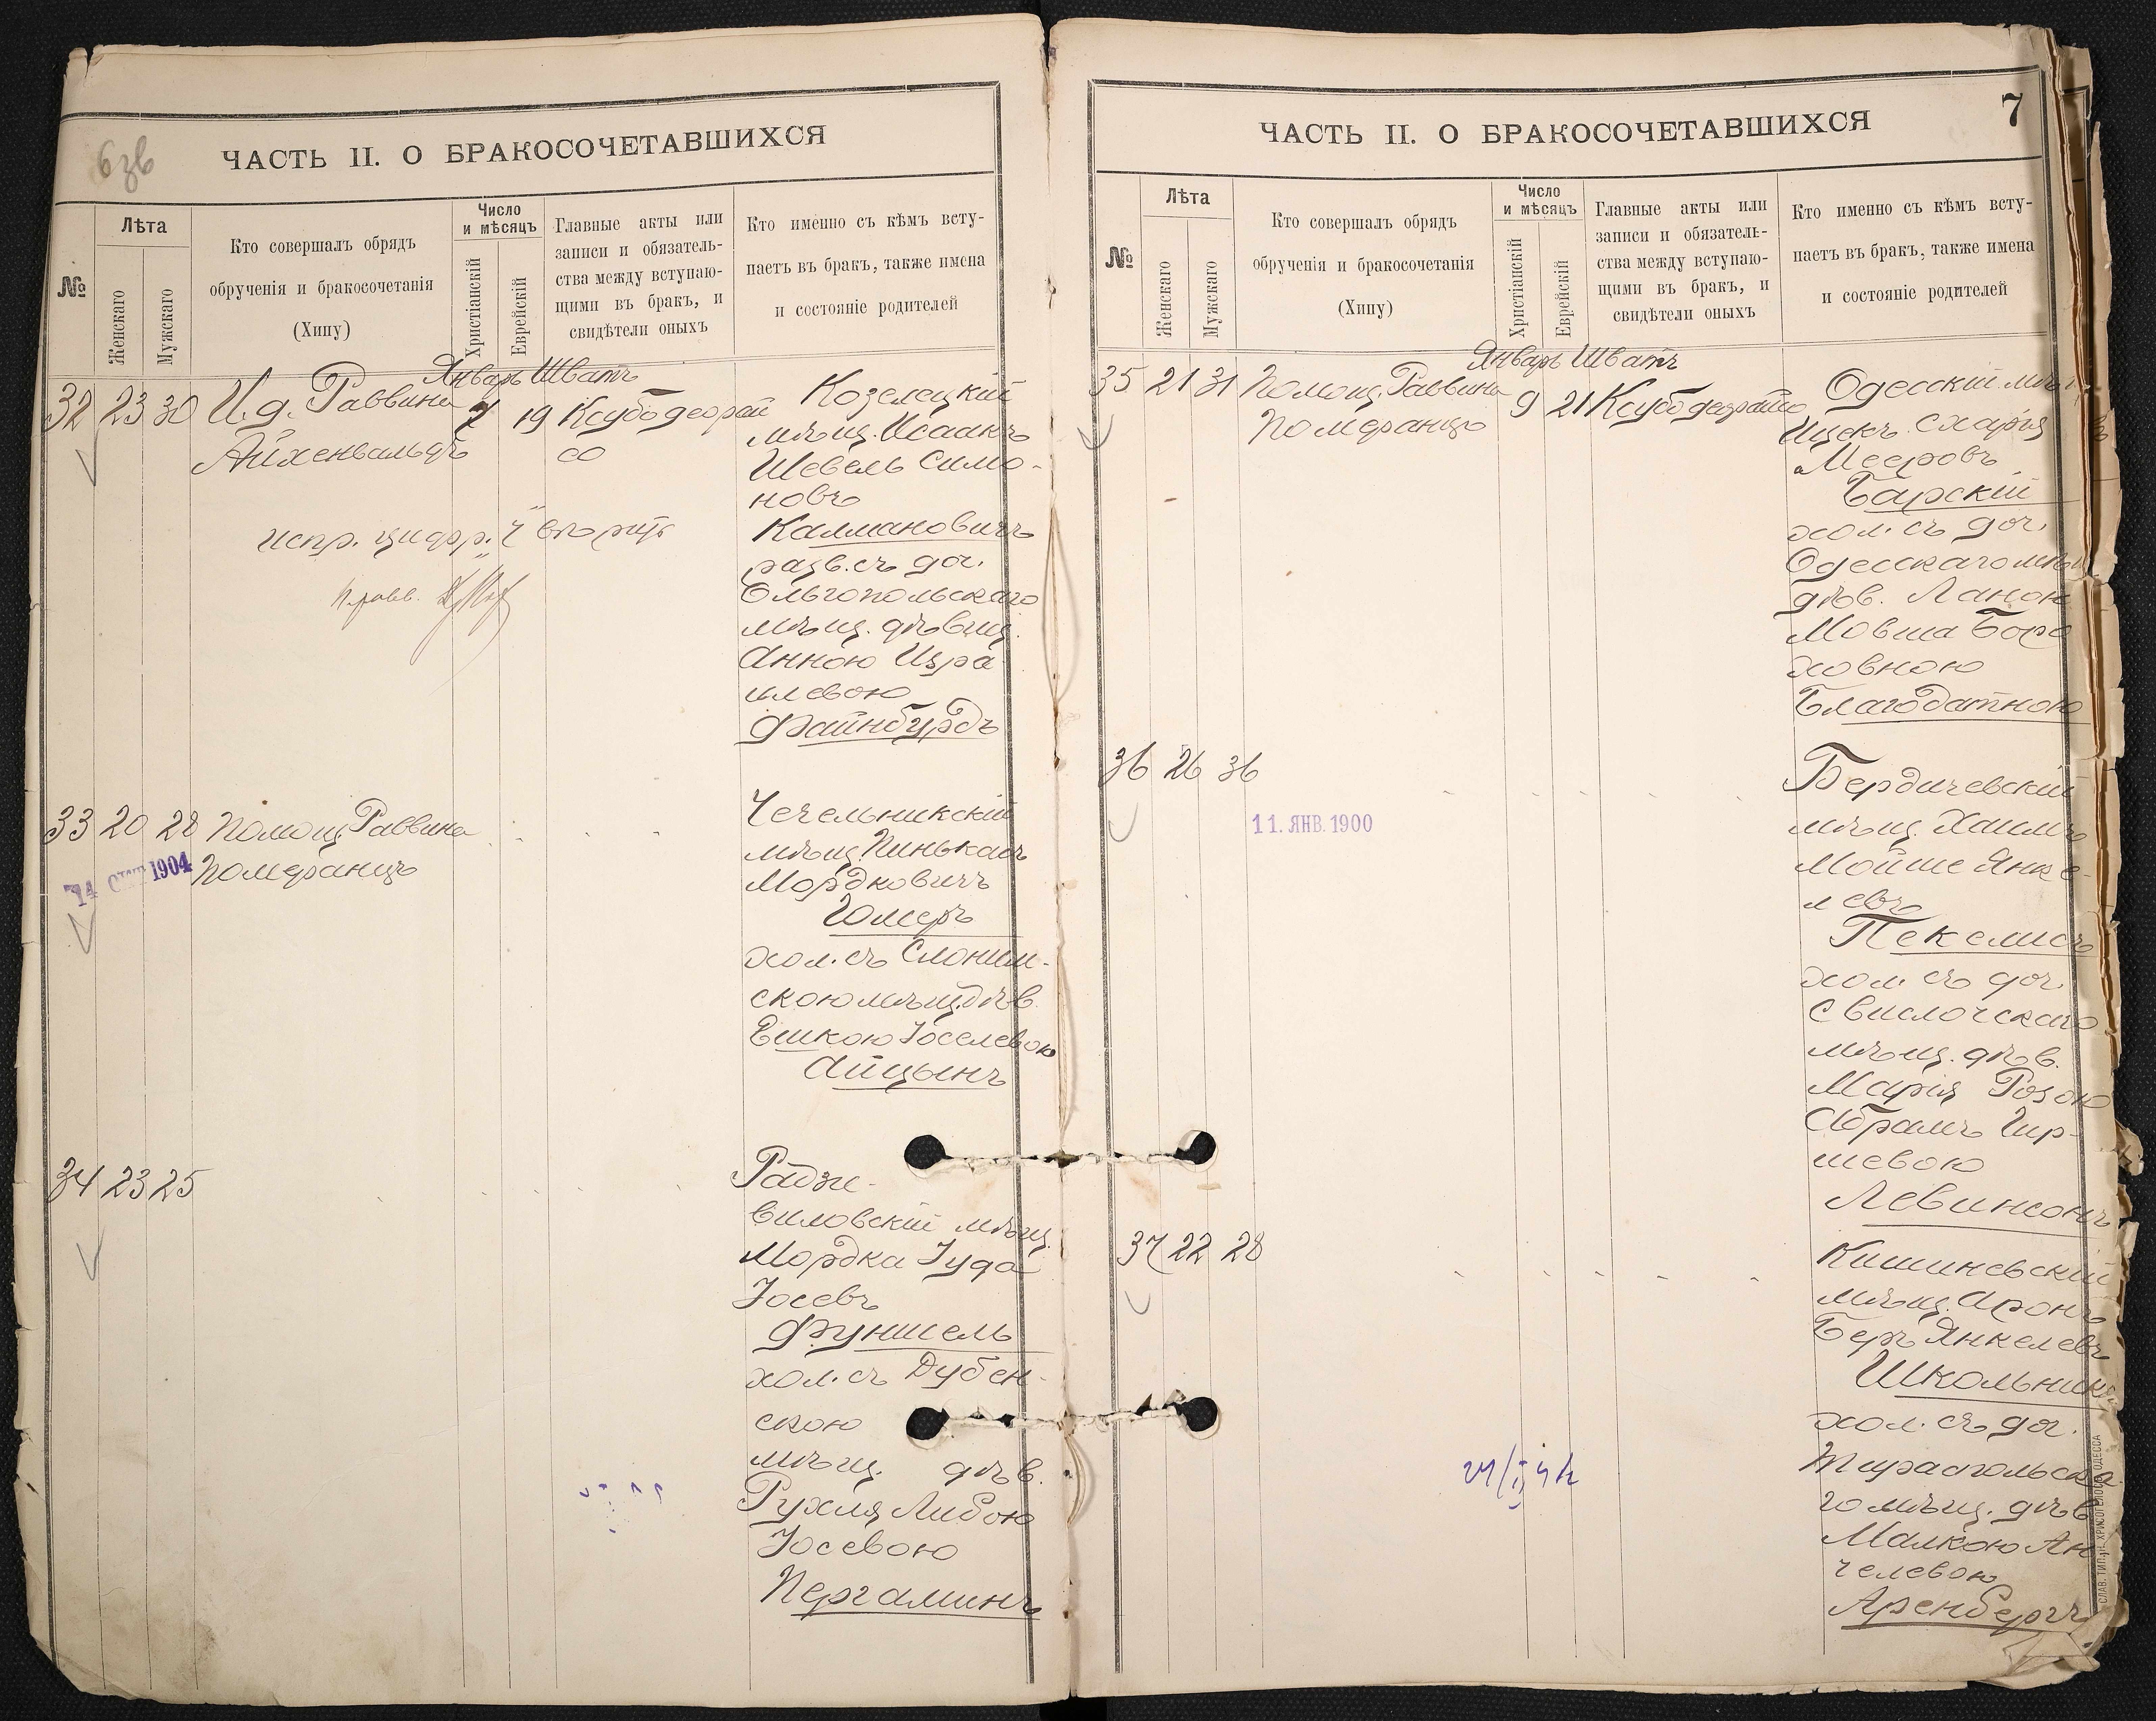 6зв
ЧАСТЬ II. О БРАКОСОЧЕТАВШИХСЯ
№
Лѣта
Женскаго
Мужскаго
Кто совершалъ обрядъ
обрученія и бракосочетанія
(Хипу)
Число
и мѣсяцъ
Христіанскій
Еврейскій
Главные акты или
записи и обязатель-
ства между вступаю-
щими въ бракъ, и
свидѣтели оныхъ
Кто именно съ кѣмъ всту-
паетъ въ бракъ, также имена
и состояніе родителей
Январь Шватъ
32 23 30 И.д. Раввина 7 19 Ксубо деорай
Айхенвальдъ
со
Козелецкій
мѣщ. Исаакъ
Шевель Симо-
новъ
Калмановичъ
разв. съ доч.
Ольгопольскаго
мѣщ. дѣвиц.
Анною Изра
илевою
Файнбурдъ
испр. цифр. "7"
33 20 28 Помощ. Раввина
Померанцъ
14 1904
Чечельникскій
мѣщ. Пинькасъ
Мордковичъ
Юмеръ
хол. съ Слоним-
скою мѣщ. дѣв.
Ешкою Іоселевою
Айцынъ
34 23 25
Радзи-
виловскій мѣщ.
Мордка Іуда
Іосевъ
Фуншель
хол. съ Дубен-
скою
мѣщ. дѣв.
Рухля Либою
Іосевою
Пергаминъ
7
ЧАСТЬ II. О БРАКОСОЧЕТАВШИХСЯ
№
Лѣта
Женскаго
Мужскаго
Кто совершалъ обрядъ
обрученія и бракосочетанія
(Хипу)
Число
и мѣсяцъ
Христіанскій
Еврейскій
Главные акты или
записи и обязатель-
ства между вступаю-
щими въ бракъ, и
свидѣтели оныхъ
Кто именно съ кѣмъ всту-
паетъ въ бракъ, также имена
и состояніе родителей
Январь Шватъ
35 21 31 Помощ. Раввина 9 21 Ксубо деорайсо
Померанцъ
Одесскій мѣщ.
Ицекъ Схарія
Мееровъ
Барскій
хол. съ доч.
Одесскаго мѣщ.
дѣв.
Мовша Боро
ховною
Благодатною
36 26 36
11. ЯНВ. 1900
Бердичевскій
мѣщ. Хаимъ
Мойше Янке-
левъ
Пекелисъ
хол. съ доч.
Свислочскаго
мѣщ. дѣв.
Марія Розою
Абрамъ Гир-
шевою
Левинсонъ
37 22 28
Кишиневскій
мѣщ. Аронъ
Беръ Янкелевъ
Школьникъ
хол. съ доч.
Тираспольска
го мѣщ. дѣв.
Малкою Ан
челевою
Аренбергъ